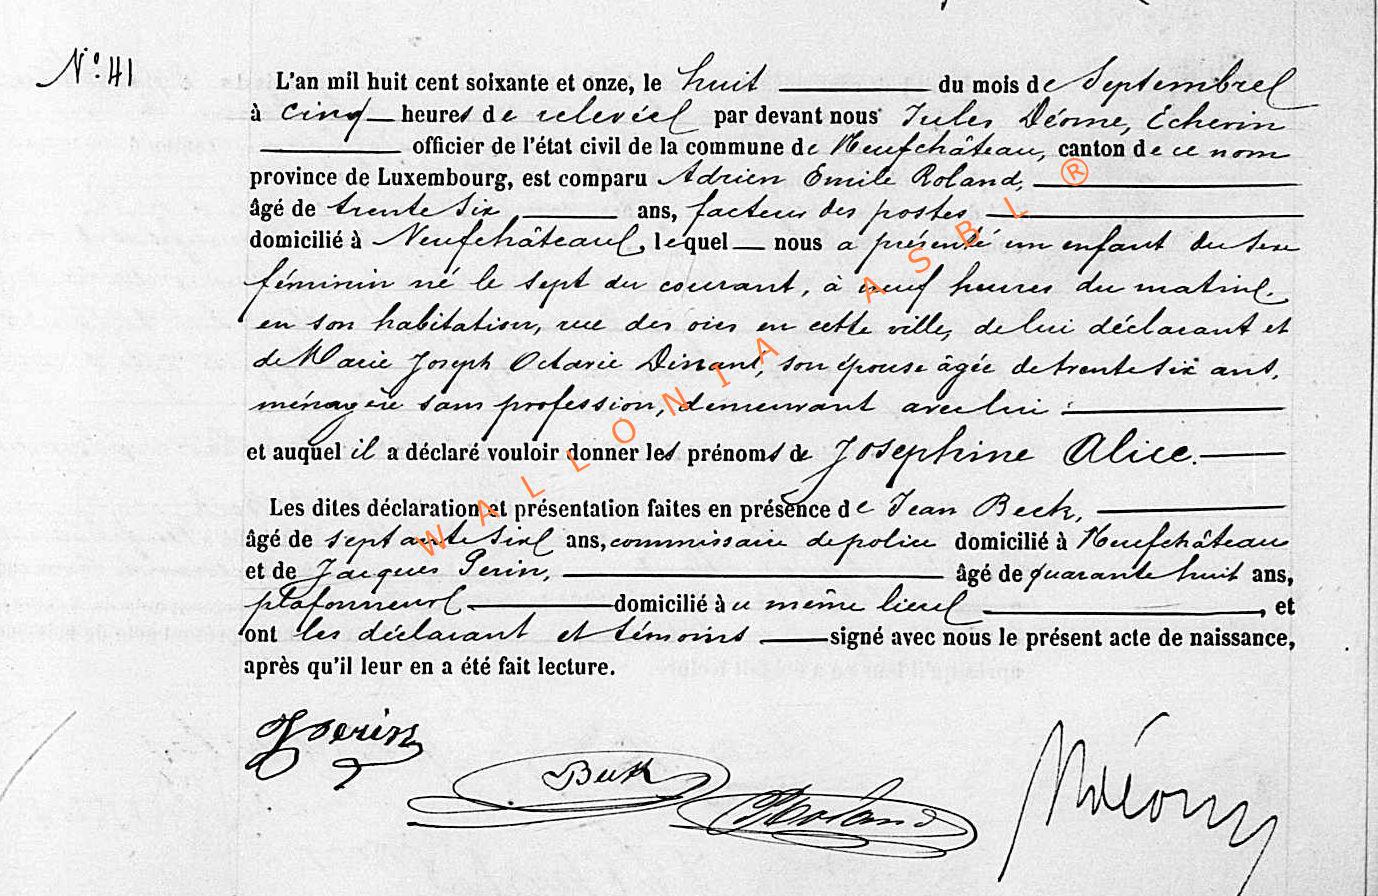 N° 41
L'an mil huit cent soixante et onze, le huit du mois de Septembre
à cinq heures de relevée par devant nous Jules Déome, Echevin
officier de l'état civil de la commune de Neufchâteau, canton de ce nom
province de Luxembourg, est comparu Adrien Emile Roland,
âgé de trente six ans, facteur des postes
domicilié à Neufchâteau, lequel nous a présenté un enfant du sexe
féminin né le sept du courant, à neuf heures du matin
en son habitation, rue des oies en cette ville, de lui déclarant et
de Marie Joseph Octavie Dinant, son épouse âgée de trente six ans,
ménagère sans profession, demeurant avec lui
et auquel il a déclaré vouloir donner les prénoms de Josephine Alice.
Les dites déclaration et présentation faites en présence de Jean Beck,
âgé de septante six ans, commissaire de police domicilié à Neufchâteau
et de Jacques Perin, âgé de quarante huit ans,
plafonneur domicilié au même lieu, et
ont les déclarant et témoins signé avec nous le présent acte de naissance,
après qu'il leur en a été fait lecture.
JPerin
Beck
Roland
WALLONIA ASBL ®